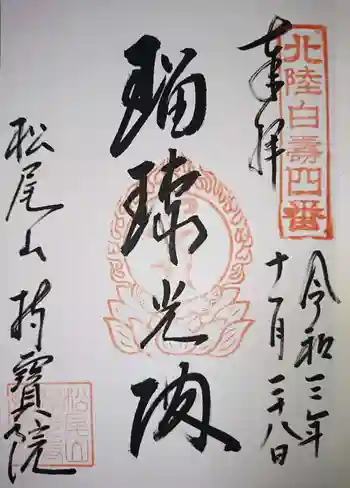 北陸白壽四番
奉拝
令和三年
十一月二十八日
瑠璃光殿
松尾山 持寳院